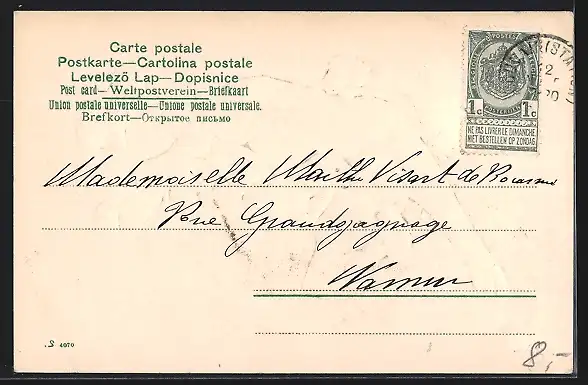 Carte postale
Postkarte—Cartolina postale
Levelező Lap—Dopisnice
Post card—Weltpostverein—Briefkaart
Union postale universelle—Unione postale universale.
Brefkort—Открытое письмо
POSTES
1c 1c
NE PAS LIVRER LE DIMANCHE
NIET BESTELLEN OP ZONDAG
Mademoiselle Marthe Visart de Bocarmé
Rue Grandgagnage
Namur
.S 4070
8,-